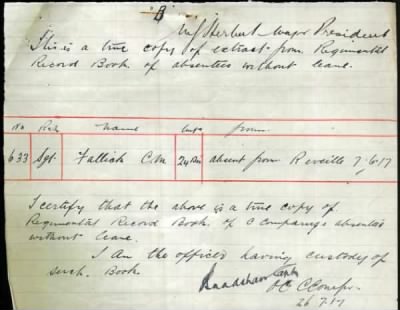 B
W J Herbert Major President
This is a true copy of extract from Regimental
Record Book of absentees without leave.
No Rank Name Unit From
633 Sgt. Fallick C.M. 24 Bn absent from Reveille 7/6/17
I certify that the above is a true copy of
Regimental Record Book of C Company absentees
without leave.
I am the officer having custody of
such Book.
Capt
OC C Company
26.7.17